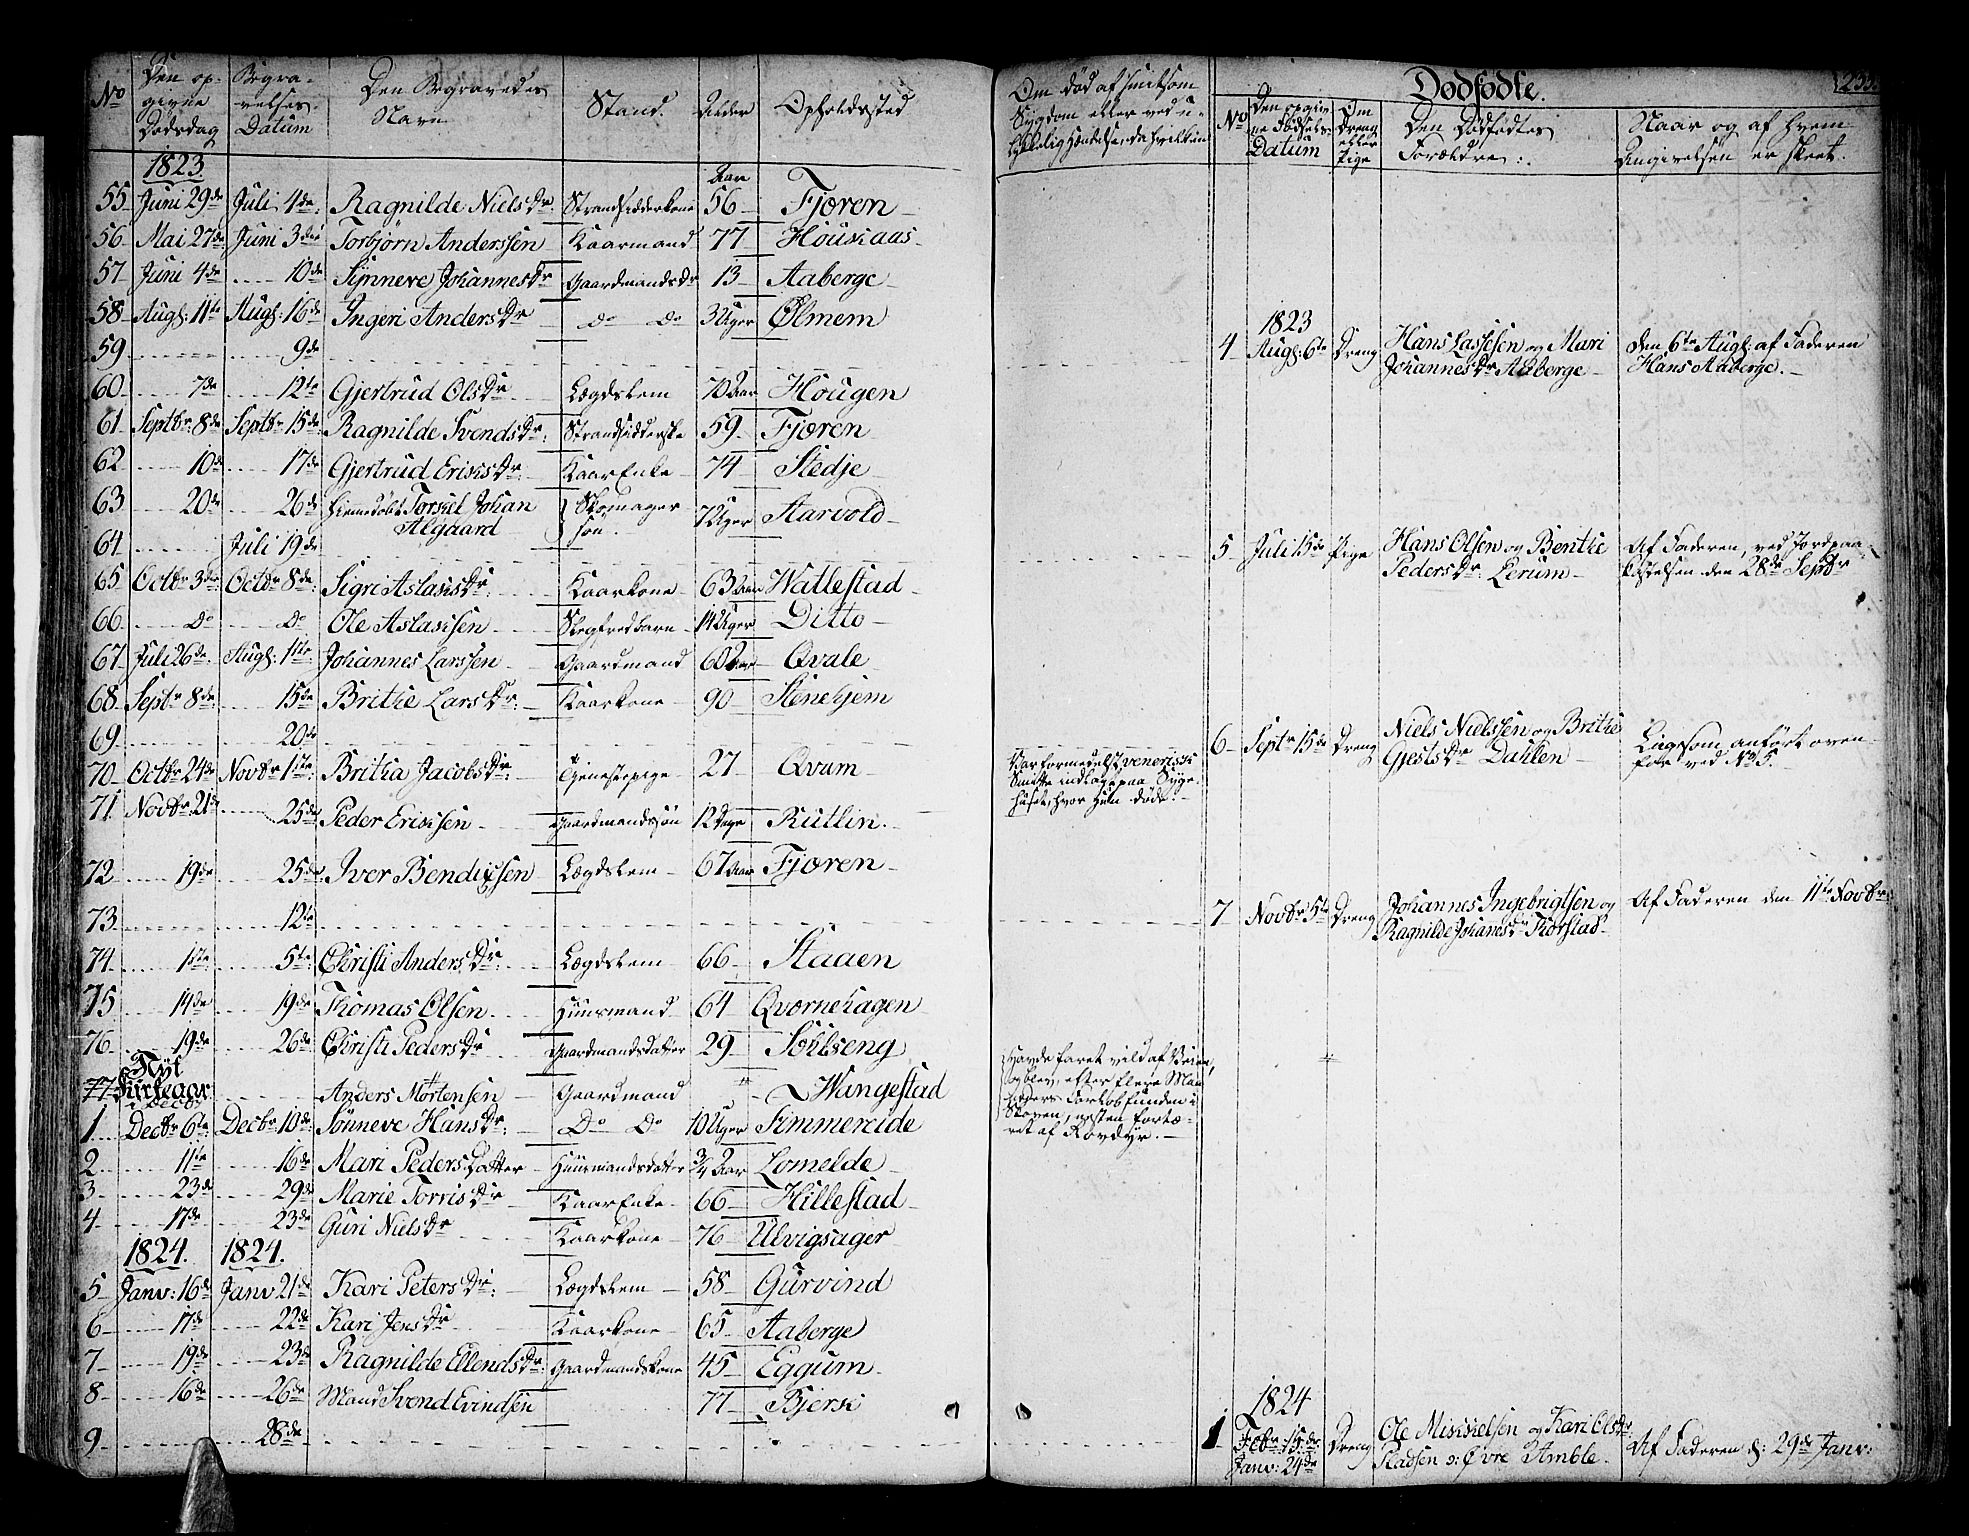 No
Den op-
givne
Dødsdag
Begra-
velses-
Datum
Den Begravedes
Navn
Stand.
Alder
Opholdssted
1823.
Aar
55 Juni 29de Juli 4de Ragnilde Niels Dr. Strandsidderkone 56 Fjøren
56 Mai 27de Juni 3die Torbjørn Anderssen Kaarmand 77 Houkaas
57 Juni 4de 10de Synneve Johannes Dr Gaardmands Dr 13 Aaberge
58 Augs: 11te Augs: 16de Ingeri Anders Dr Do Do 3 Uger Ølmem
59 9de
60 7de 12te Gjertrud Ols Dr Lægdslem 70 Aar Hougen
61 Septbr. 8de Septbr 15de Ragnilde Svends Dr. Strandsidderske 59 Fjøren
62 10de 17de Gjertrud Eriks Dr. KaarEnke 74 Stedje
63 20de 26de hiemedøbt Torkel Johan
Algaard
Skomager
søn. 7 Uger Starvold
64 Juli 19de
65 Octbr 3die Octbr 8de Sigri Aslaks Dr. Kaarkone 63 Aar Wallestad
66 Do Do Ole Aslaksen Slegfredbarn 14 Uger Ditto
67 Juli 26de Augs: 1ste Johannes Larssen Gaardmand 60 Aar Qvale
68 Septr 8de 15de Brithe Lars Dr. Kaarkone 90 Stenehjem
69 20de
70 Octbr 24de Novbr 1ste Britha Jacobs Dr. Tjenestepige 27 Qvam
71 Novbr 21de 25de Peder Eriksen Gaardmandssøn 12 Dage Rutlin.
72 19de 25de Iver Bendixsen Lægdslem 67 Aar Fjøren
73 12te
74 1ste 5te Christi Anders Dr. Lægdslem 66 Staaen
75 14de 19de Thomas Olsen Huusmand 64 Qvørnehagen
76 19de 26de Christi Peders Dr Gaardmandsdatter 29 Soülseng
77 Anders Mortensen Gaardmand Wangestad
Nyt
Kirkegaar
1 Decbr 6te Decbr 10de Sønneve Hans Dr. Do Do 10 Uger Simmereide
2 11te 16de Mari Peders Datter Huusmandsdatter 3/4 Aar Lomelde
3 23de 29de Marie Torris Dr KaarEnke 66 Hillestad
4 17de 23de Guri Niels Dr Kaarkone 76 Ulvigsager
1824. 1824.
5 Janv: 16de Janv 21de Kari Peters Dr. Lægdslem 58 Gurvind
6 17de 22de Kari Jens Dr Kaarkone 65 Aaberge
7 19de 23de Ragnilde Ellends Dr. Gaardmandskone 45 Eggum
8 16de 26de Mand Svend Evindsen 77 Bjerk
9 28de
Om død af smitsom
Sygdom eller ved u-
lykkelig Hændelse, da hvilken
Var formedelst venerisk
Smitte indlagt paa Syge-
huset, hvor hun døde.
Havde faret vild af Veien,
og blev, efter flere Maa
neders Forløb funden i
Skoven, næsten fortæ-
ret af Rovdyr.
Dødfødte.
233
No
Den opgiv
ne Fødsels
Datum
Om
Dreng
eller
Pige
Den Dødfødtes
Forældre:
Naar og af hvem
Angivelsen er skeet.
1823
4 Augs: 6te Dreng Hans Lassesen og Mari
Johannes Dr Aaberge
Den 6te Augs: af Faderen
Hans Aaberge.
5 Juli 15de Pige Hans Olsen og Benthe
Peders Dr. Lerum
Af Faderen, ved Jordpaa-
kastelsen den 28de Septbr
6 Septr 15de Dreng Niels Nielssen og Brithe
Gjests Dr Dahlen
Ligesom anført oven-
for ved No 5.
7 Novbr 5te Dreng Johannes Ingebrigtsen og
Ragnilde Johannes Dr Kørstad
Af Faderen den 11te Novbr.
1824
1 Febr 15de
Janv: 24de Dreng Ole Mikkelsen og Kari Ols Dr.
Pladsen o: Øvre Amble.
Af Faderen d: 29de Janv: